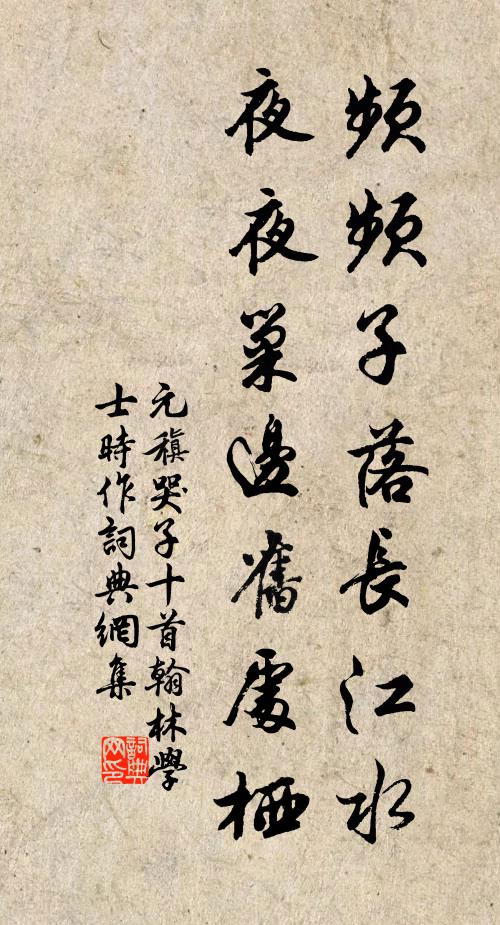 頻頻子落長江水
夜夜巢邊舊處栖
元稹哭子十首翰林學
士時作詞典網集
詞典
网印